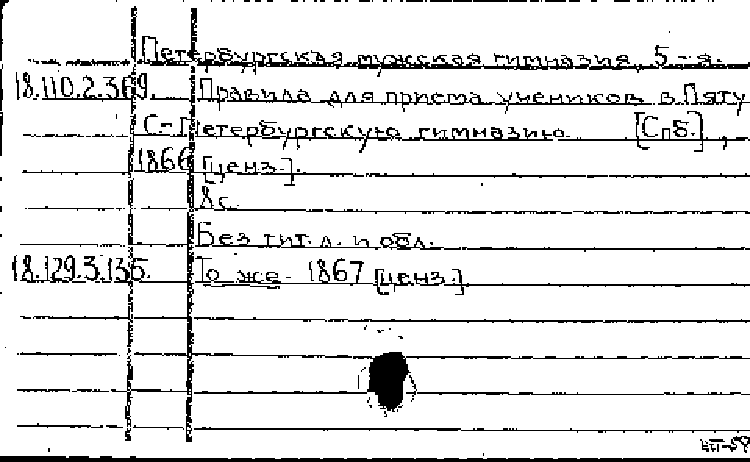 Петербургская мужская гимназия, 5-я.
18.110.2.369. Правила для приема учеников в Пяту
С-Петербургскую гимназию [Спб.],
1866 [ценз.].
8 с.
Без тит. л. и обл.
18.129.3.135. То же. 1867 [ценз.].